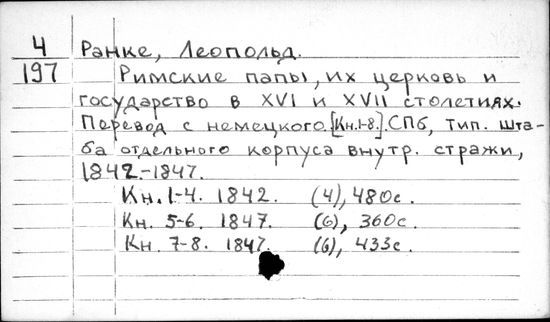 4
197
Ранке, Леопольд.
Римские папы, их церковь и
государство в XVI и XVII столетиях.
Перевод с немецкого. [Кн.1-8]. СПб, тип. шта-
ба отдельного корпуса внутр. стражи,
1842-1847.
Кн. 1-4. 1842. (4), 480с.
Кн. 5-6. 1847. (6), 360с.
Кн. 7-8. 1847. (6), 433с.